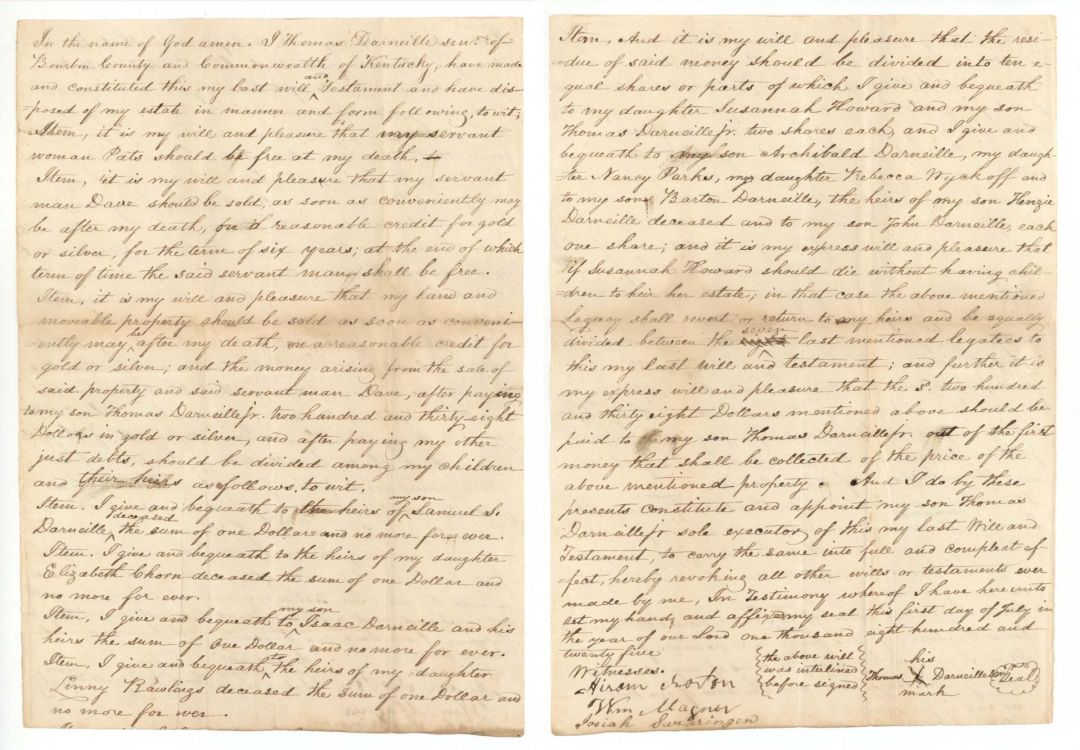 In the name of God amen. I Thomas Darneille senr. of
Bourbon County and Commonwealth of Kentucky, have made
and constituted this my last will and Testament and have dis-
=posed of my estate in manner and form following, to wit,
Item, it is my will and pleasure that my servant
woman Pats should be free at my death,
Item, it is my will and pleasure that my servant
man Dave should be sold, as soon as conveniently may
be after my death, on a reasonable credit for gold
or silver, for the term of six years; at the end of which
term of time the said servant man shall be free.
Item, it is my will and pleasure that my land and
moveable property should be sold as soon as conveni-
=ently may be after my death, on a reasonable credit for
gold or silver; and the money arising from the sale of
said property and said servant man Dave, after paying
to my son Thomas Darneille jr. two hundred and thirty eight
Dollars in gold or silver, and after paying my other
just debts, should be divided among my children
and their heirs as follows. to wit.
Item. I give and bequeath to the heirs of my son Samuel S.
Darneille deceased the sum of one Dollar and no more for ever.
Item. I give and bequeath to the heirs of my daughter
Elizabeth Chorn deceased the sum of one Dollar and
no more for ever.
Item, I give and bequeath to my son Isaac Darneille and his
heirs the sum of One Dollar and no more for ever.
Item, I give and bequeath to the heirs of my daughter
Linny Rawlings deceased the sum of one Dollar and
no more for ever.
Item, And it is my will and pleasure that the resi-
=due of said money should be divided into ten e-
qual shares or parts of which I give and bequeath
to my daughter Susannah Howard and my son
Thomas Darneille Jr. two shares each, and I give and
bequeath to my son Archibald Darneille, my daugh-
ter Nancy Parks, my daughter Rebecca Wyckoff and
to my son Barton Darneille, the heirs of my son Henzie
Darneille deceased and to my son John Darneille, each
one share; and it is my express will and pleasure that
if Susannah Howard should die without having chil-
=dren to heir her estate; in that case the above mentioned
Legacy shall revert or return to my heirs and be equally
divided between the seven last mentioned legatees to
this my last will and testament; and further it is
my express will and pleasure that the sd. two hundred
and thirty eight Dollars mentioned above should be
paid to my son Thomas Darneille jr. out of the first
money that shall be collected of the price of the
above mentioned property. And I do by these
presents constitute and appoint my son Thomas
Darneille jr sole executor of this my last Will and
Testament, to carry the same into full and compleat ef-
=fect, hereby revoking all other wills or testaments ever
made by me, In Testimony whereof I have here unto
set my hand, and affixed my seal this first day of July in
the year of our Lord one thousand eight hundred and
twenty five
Witnesses.
Hiram
Wm Wagner
Josiah Swearingen
the above will
was interlined
before signed
his
Thomas X Darneille Senr
mark
Seal